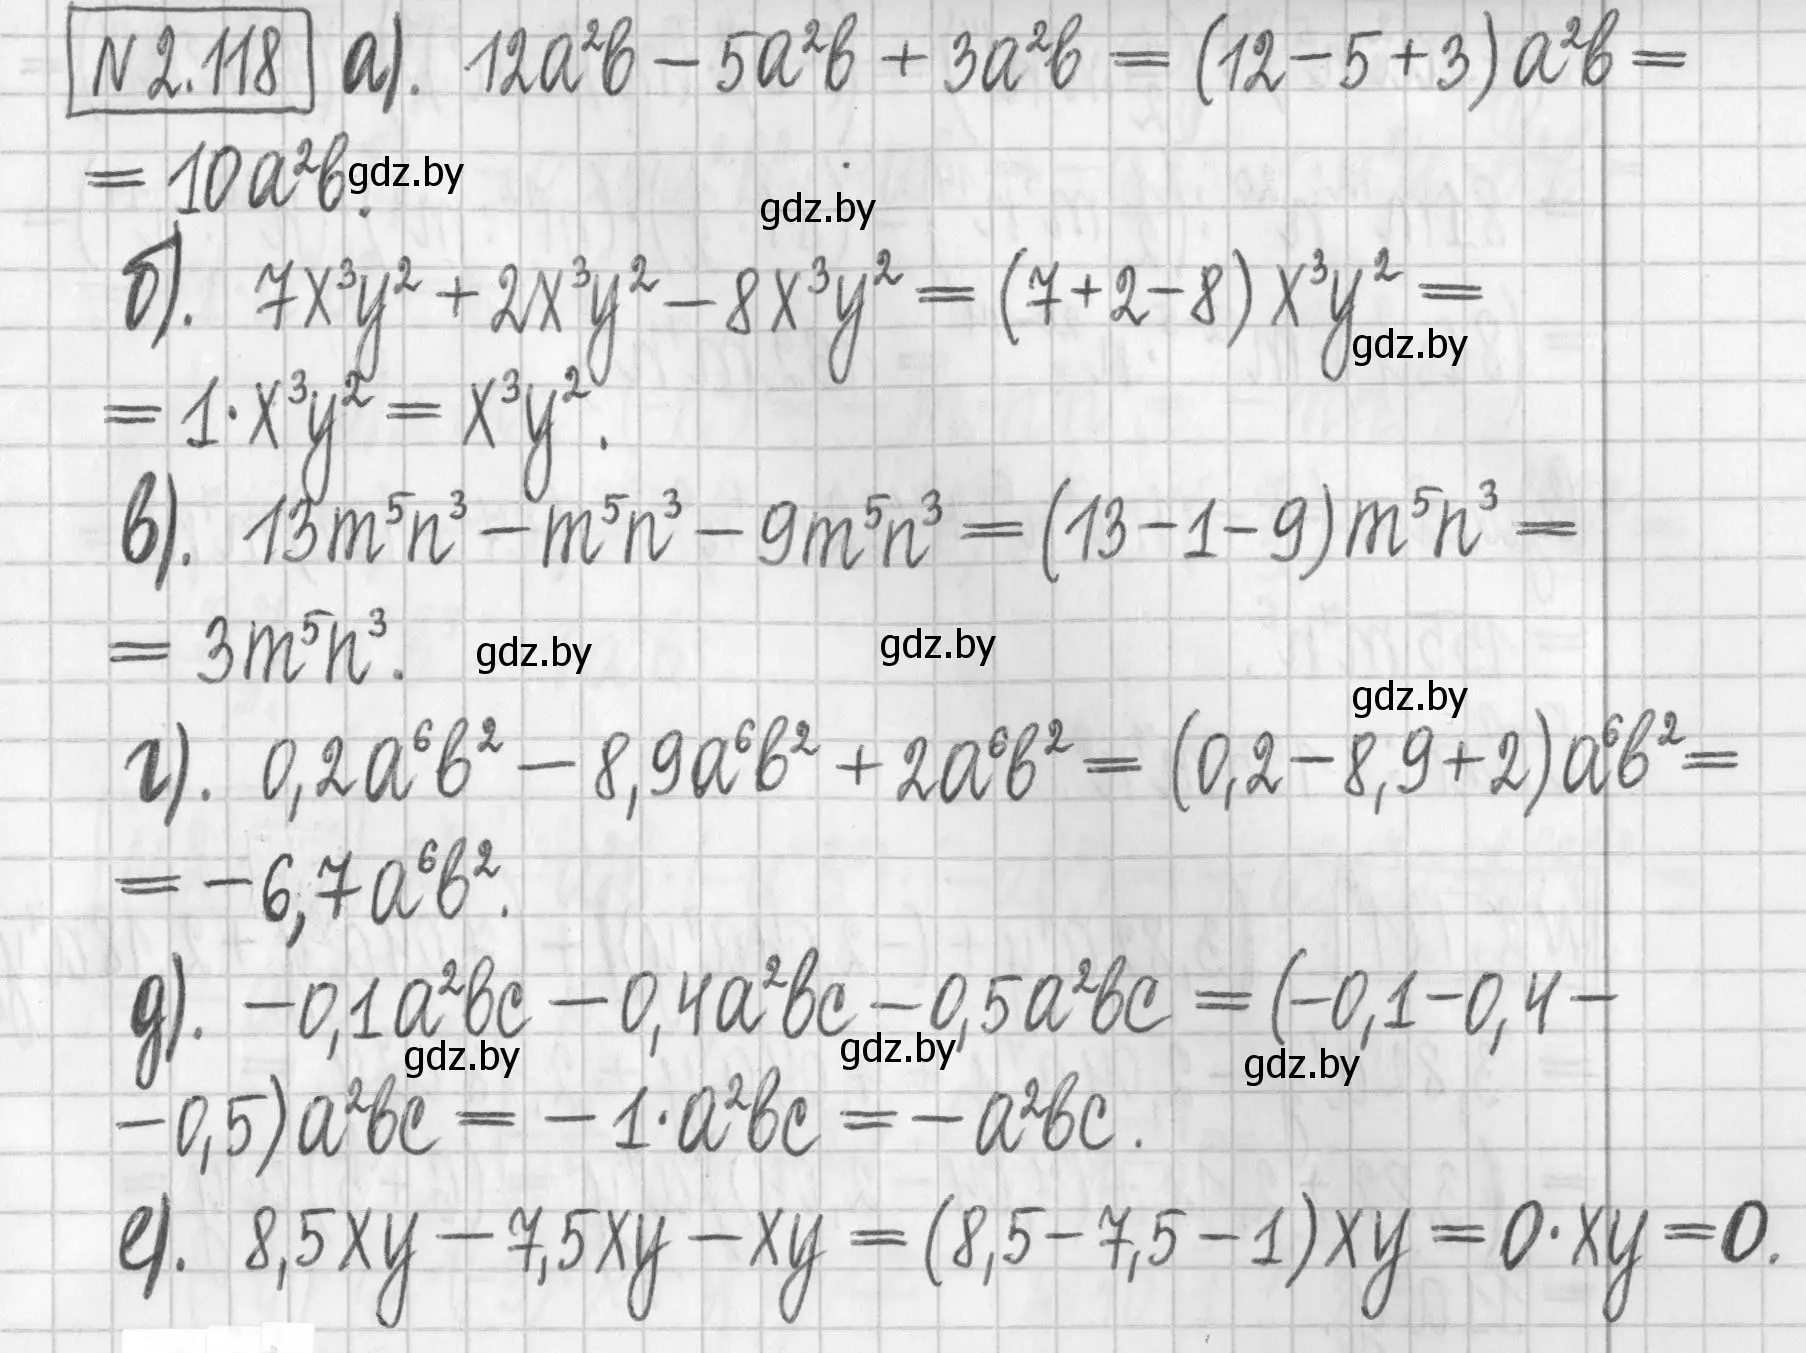 N 2.118 а). 12a²b − 5a²b + 3a²b = (12 − 5 + 3) a²b =
= 10a²b. gdz.by
gdz.by
б). 7x³y² + 2x³y² − 8x³y² = (7 + 2 − 8) x³y² =
gdz.by
= 1 · x³y² = x³y².
в). 13m⁵n³ − m⁵n³ − 9m⁵n³ = (13 − 1 − 9) m⁵n³ =
= 3m⁵n³. gdz.by gdz.by
gdz.by
г). 0,2a⁶b² − 8,9a⁶b² + 2a⁶b² = (0,2 − 8,9 + 2) a⁶b² =
= −6,7a⁶b².
д). −0,1a²bc − 0,4a²bc − 0,5a²bc = (−0,1 − 0,4 −
gdz.by gdz.by gdz.by
−0,5) a²bc = −1 · a²bc = −a²bc.
е). 8,5xy − 7,5xy − xy = (8,5 − 7,5 − 1) xy = 0 · xy = 0.